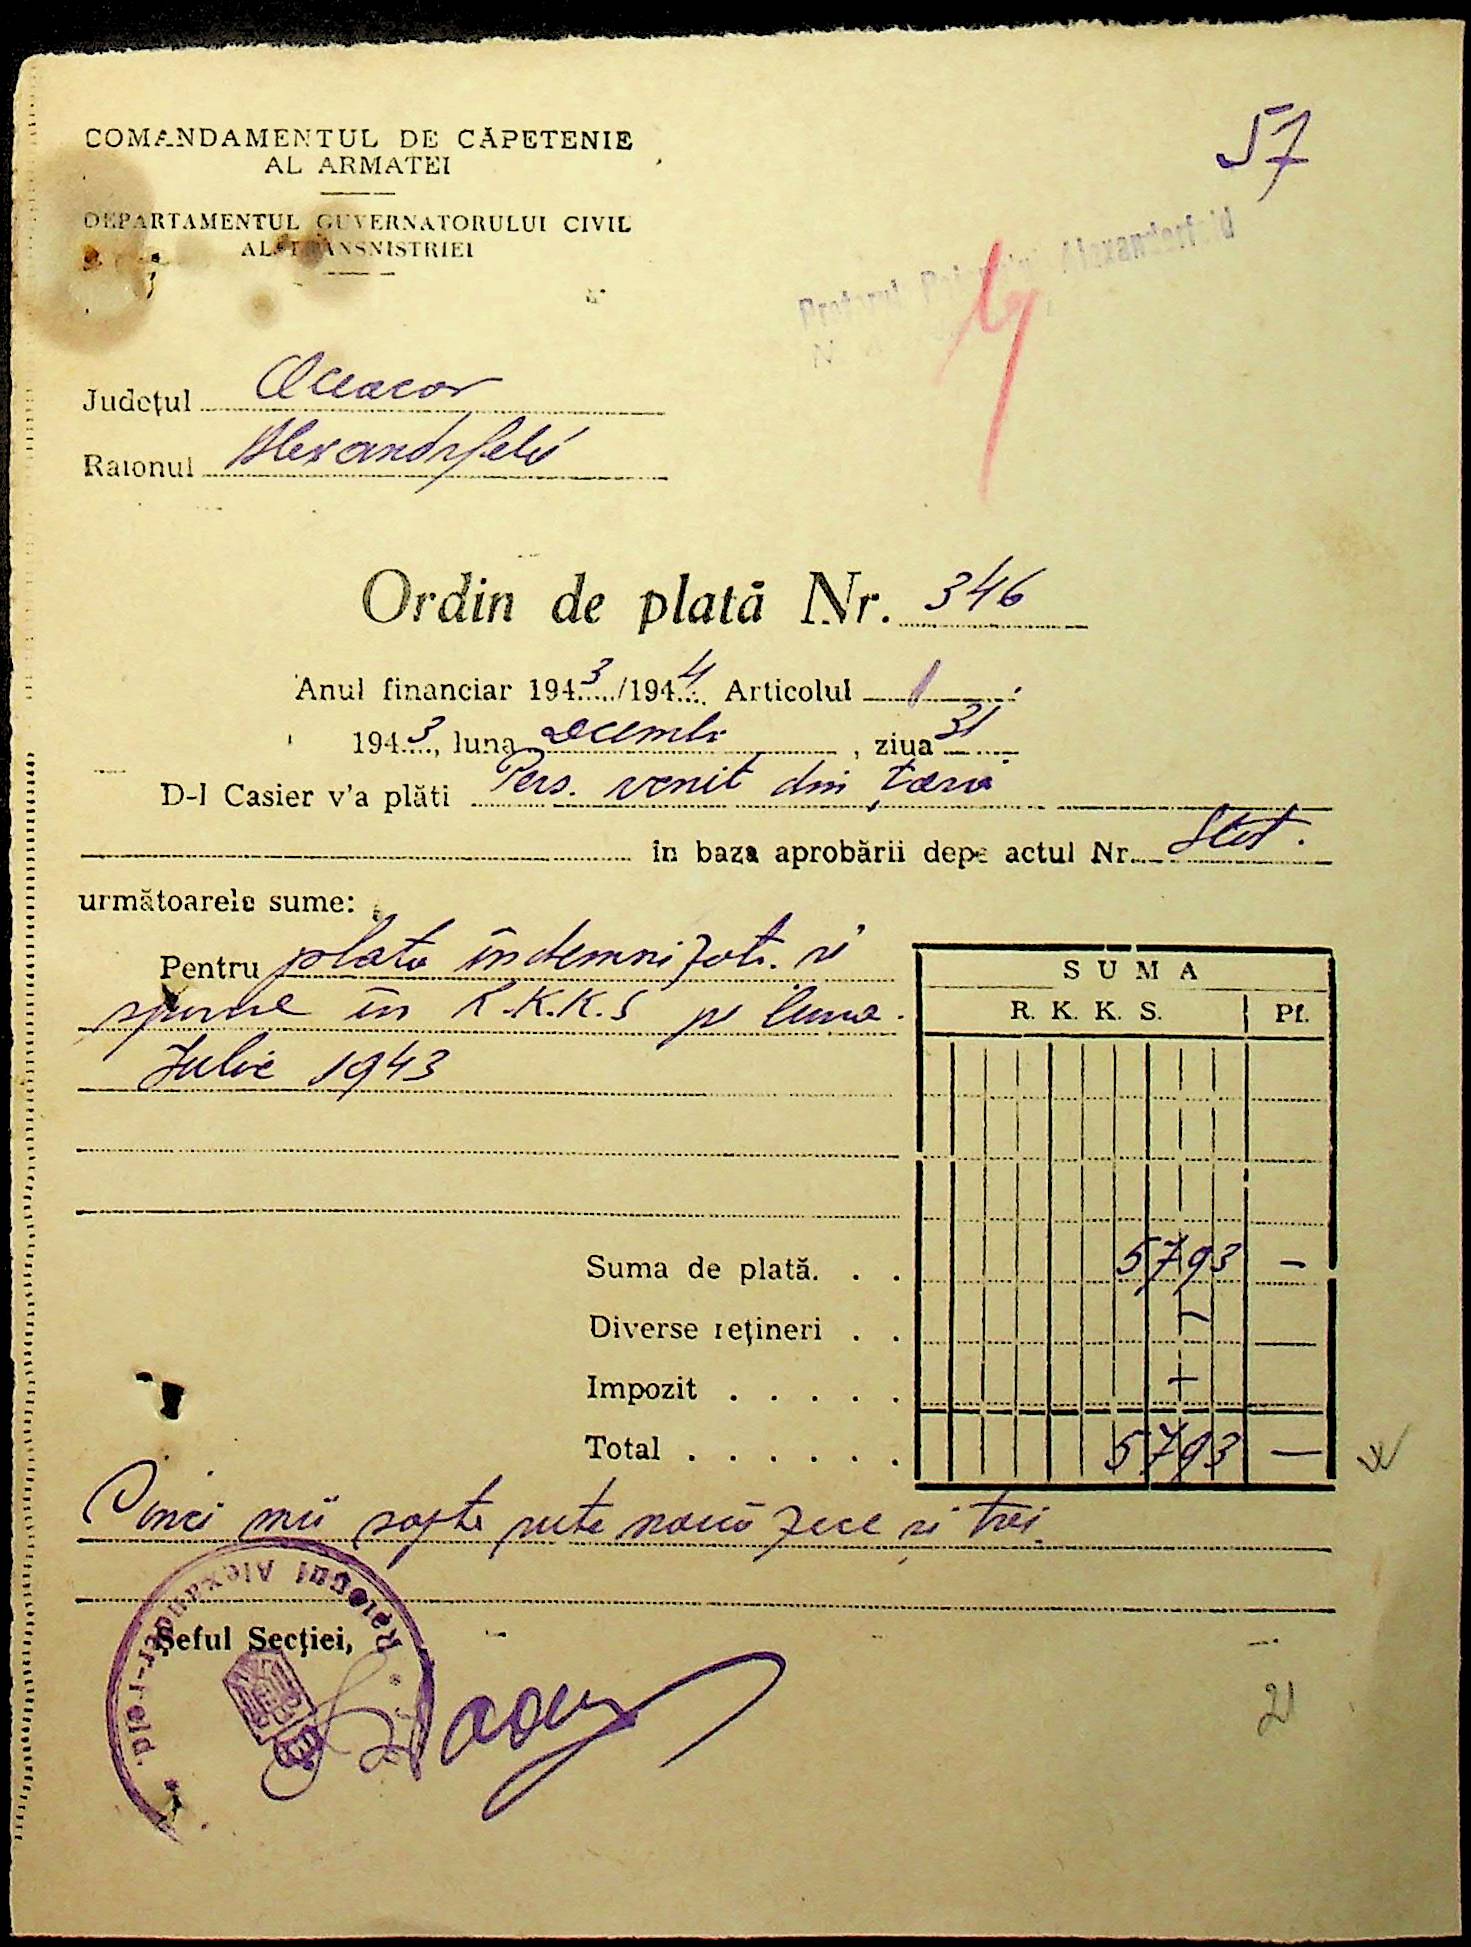 57
COMANDAMENTUL DE CĂPETENIE
AL ARMATEI
DEPARTAMENTUL GUVERNATORULUI CIVIL
AL TRANSNISTRIEI
Pretorul Alexanderfeld
Județul Oceacov
Raionul Alexandrfeld
Ordin de plată Nr. 346
Anul financiar 1943/1944 Articolul 1
1943, luna Decembr, ziua 31
D-l Casier v'a plăti Pers. venit din țară
în baza aprobării depe actul Nr. Stat.
următoarele sume:
Pentru plata indemnizați. si
spurile in R.K.K.S pe luna
Iulie 1943
SUMA
R. K. K. S. Pf.
Suma de plată. . . 5793 —
Diverse rețineri . . —
Impozit . . . . .
Total . . . . . . 5793 —
Cinci mii sapte sute nouă zece si trei
Raionul Alexander-Feld
Șeful Secției,
21